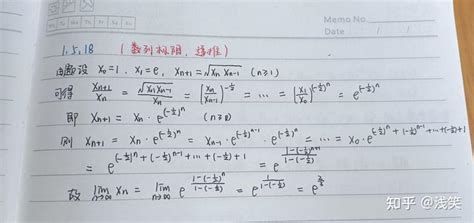 Memo No.
Date / /
1.5.18 (数列极限,递推)
由题设 x₀=1, x₁=e, xₙ₊₁=√(xₙxₙ₋₁) (n≥1)
可得 xₙ₊₁/xₙ = √(xₙxₙ₋₁)/xₙ = [xₙ/xₙ₋₁]^(-1/2) = … = [x₁/x₀]^((-1/2)ⁿ) = e^((-1/2)ⁿ)
即 xₙ₊₁ = xₙ·e^((-1/2)ⁿ) (n≥0)
则 xₙ₊₁ = xₙ·e^((-1/2)ⁿ) = xₙ₋₁·e^((-1/2)ⁿ⁻¹)·e^((-1/2)ⁿ) = … = x₀·e^((-1/2)ⁿ+(-1/2)ⁿ⁻¹+…+(-1/2)+1)
= e^((-1/2)ⁿ+(-1/2)ⁿ⁻¹+…+(-1/2)+1) = e^((1-(-1/2)ⁿ⁺¹)/(1-(-1/2)))
故 lim(n→∞) xₙ = lim(n→∞) e^((1-(-1/2)ⁿ)/(1-(-1/2))) = e^(1/(1-(-1/2))) = e^(2/3)
知乎 @浅笑